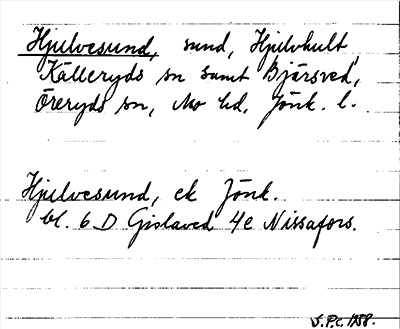 Hjulvesund, sund, Hjelvhult,
Källeryds sn samt Bjärsved,
Öreryds sn, Mo hd, Jönk. l.
Hjulvesund, ek Jönk.
bl. 6 D Gislaved 4e Nissafors.
S.P.C. 1958.